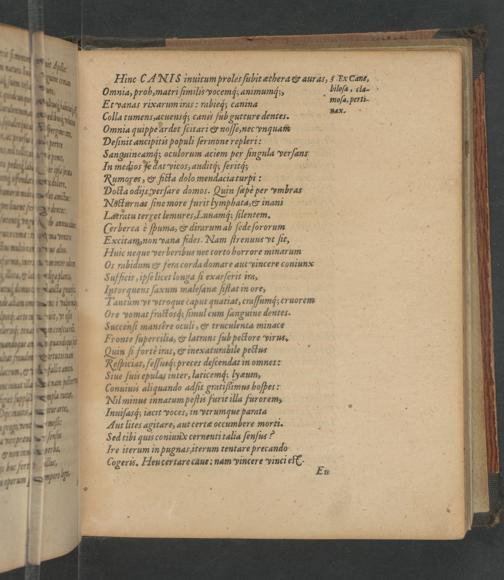 Hinc CANIS inuitum proles subit æthera & auras,
Omnia, proh, matri similis vocemq́; animumq́;,
Et vanas rixarum iras: rabieq́; canina
Colla tumens, acuensq́; canis sub gutture dentes.
Omnia quippe ardet scitari & nosse, nec vnquam
Desinit ancipitis populi sermone repleri:
Sanguineamq́; oculorum aciem per singula versans
In medios se dat vicos, auditq́; feritq́;
Rumores, & ficta dolo mendacia turpi:
Docta odijs versare domos. Quin sæpè per vmbras
Nocturnas sine more furit lymphata, & inani
Latratu terget lemures, Lunamq́; silentem.
Cerberea è spuma, & dirarum ab sede sororum
Excitam, non vana fides. Nam strenuus vt sit,
Huic neque verberibus nec torto horrore minarum
Os rabidum & fera corda domare aut vincere coniunx
Sufficit, ipse licet longa si exarserit ira,
Intorquens saxum malesanæ sistat in ore,
Tantum vt vtroque caput quatiat, crassumq́; cruorem
Ore vomat fractosq́; simul cum sanguine dentes.
Succensi mansêre oculi, & truculenta minace
Fronte supercilia, & latrans sub pectore virus,
Quin si fortè iras, & inexaturabile pectus
Respicias, fessusq́; preces descendat in omnes:
Siue suis epulas inter, laticemq́; lyæum,
Conuiuis aliquando adsit gratissimus hospes:
Nil minus innatum pestis furit illa furorem,
Inuisasq́; iacit voces, in vtrumque parata
Aut lites agitare, aut certæ occumbere morti.
Sed tibi quis coniunx cernenti talia sensus?
Ire iterum in pugnas, iterum tentare precando
Cogeris. Heu certare caue: nam vincere vinci est.
En
5 Ex Cane,
biliosa, cla-
mosa, perti-
nax.